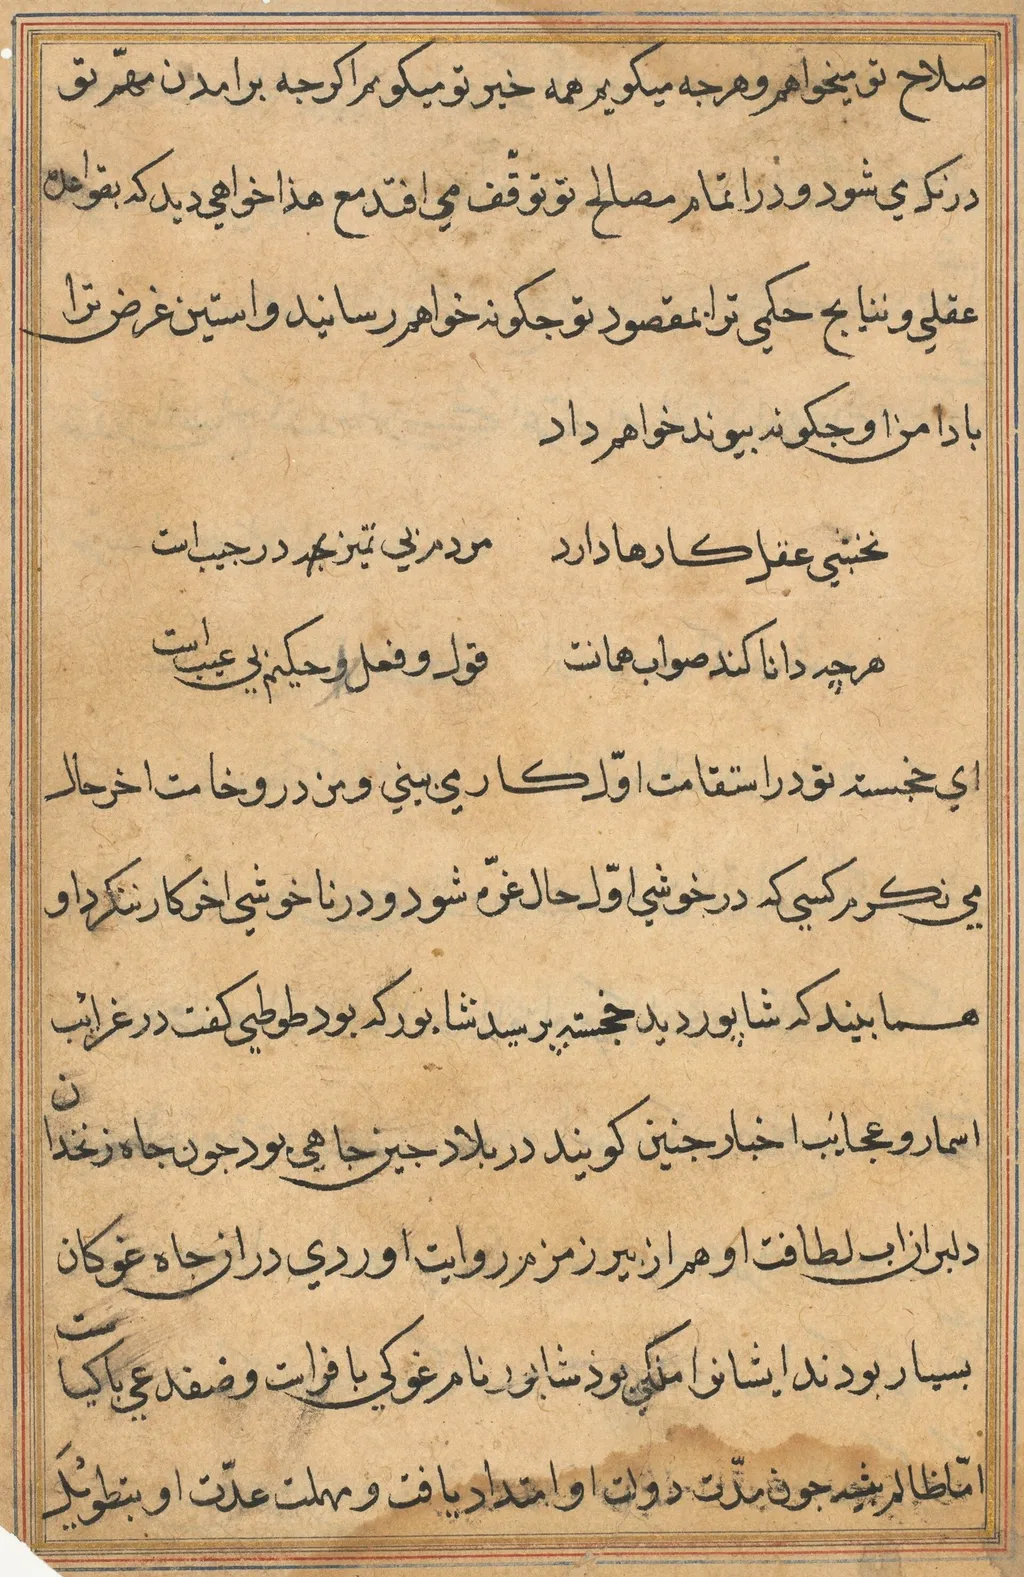 صلاح تو میخواهم و هرجه میکویم همه خیر تو میکویم اکرجه برامدن مهمّ تو
درنکی می شود و درا تمام مصالح تو توقّف می افتد مع هذا خواهی دید که بقواعد
عقلی و نتایج حکمی ترا بمقصود تو جکونه خواهم رسانید و استین غرض ترا
با دامن او جکونه بیوند خواهم داد
نخشبی عقل کارها دارد مردم بی تمیز در جیب است
هرچه دانا کند صواب همانست قول و فعل و حکیم بی عیب است
ای خجسته تو در استقامت اوّل کار می بینی و من در وخامت اخر حال
می نکرم کسی که در خوشی اوّل حال غرّه شود و در ناخوشی اخر کار ننکرد او
همـا بیند که شاپور دید خجسته پرسید شابور که بود طوطی کفت در غرائب
اسمار و عجائب اخبار جنین کویند در بلاد جین جاهی بود جون جاه زنخدان
دلبران اب لطافت او هم از بیر زمزم روایت اوردی دران جاه غوکان
بسیار بودند ایشانرا ملکی بوذ شابور نام غوکی با فراست و ضفدعی با کیاست
امّا ظالم جون مدّت دولت او امتداد یافت و مهلت عدّت او بتطویل